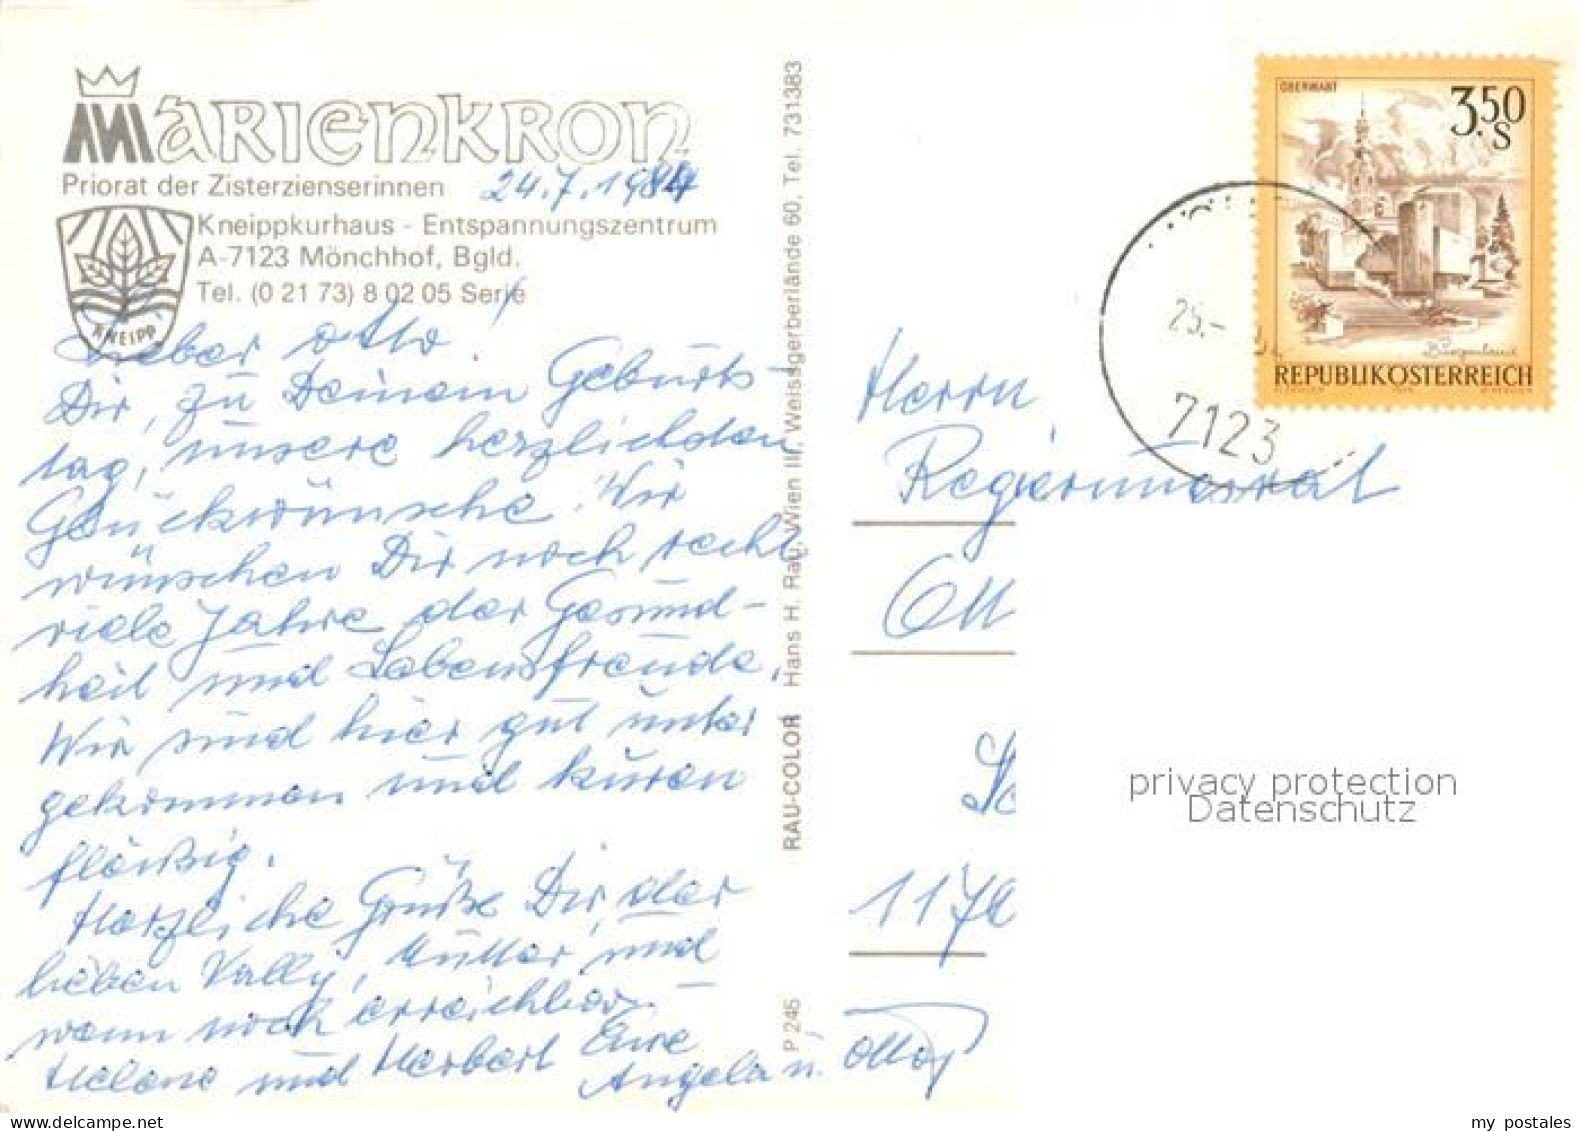 MARIENKRON
Priorat der Zisterzienserinnen
24.7.1984
Kneippkurhaus - Entspannungszentrum
A-7123 Mönchhof, Bgld.
Tel. (0 21 73) 8 02 05 Serie
KNEIPP
Lieber Otto!
Dir, zu Deinem Geburts-
tag, unsere herzlichsten
Glückwünsche. Wir
wünschen Dir noch recht
viele Jahre der Gesund-
heit und Lebensfreude.
Wir sind hier gut unter
gekommen und kuren
fleißig.
Herzliche Grüße Dir, der
lieben Vally, Mutter und
wenn noch erreichbar
Helene und Herbert Eure
Angela u. Otto
RAU-COLOR Hans H. Rau, Wien III, Weissgerberlände 60, Tel. 731383
P 245
OBERWART
3.50
S
Burgenland
REPUBLIK ÖSTERREICH
25.-
7123
Herrn
Regierungsrat
Ott
117
privacy protection
Datenschutz
my postales